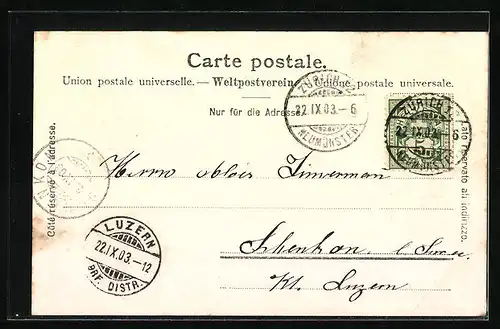 Carte postale.
Union postale universelle. — Weltpostverein. — Unione postale universale.
Nur für die Adresse.
ZÜRICH 12
22.IX.03.-6
NEUMÜNSTER
ZÜRICH 12
22.IX.03.-6
NEUMÜNSTER
Côté réservé à l'adresse.
Lato riservato all'indirizzo.
Herrn Alois Zimmerman
Schenkon b. Sursee
Kt. Luzern
LUZERN
22.IX.03.-12
BRF. DISTR.